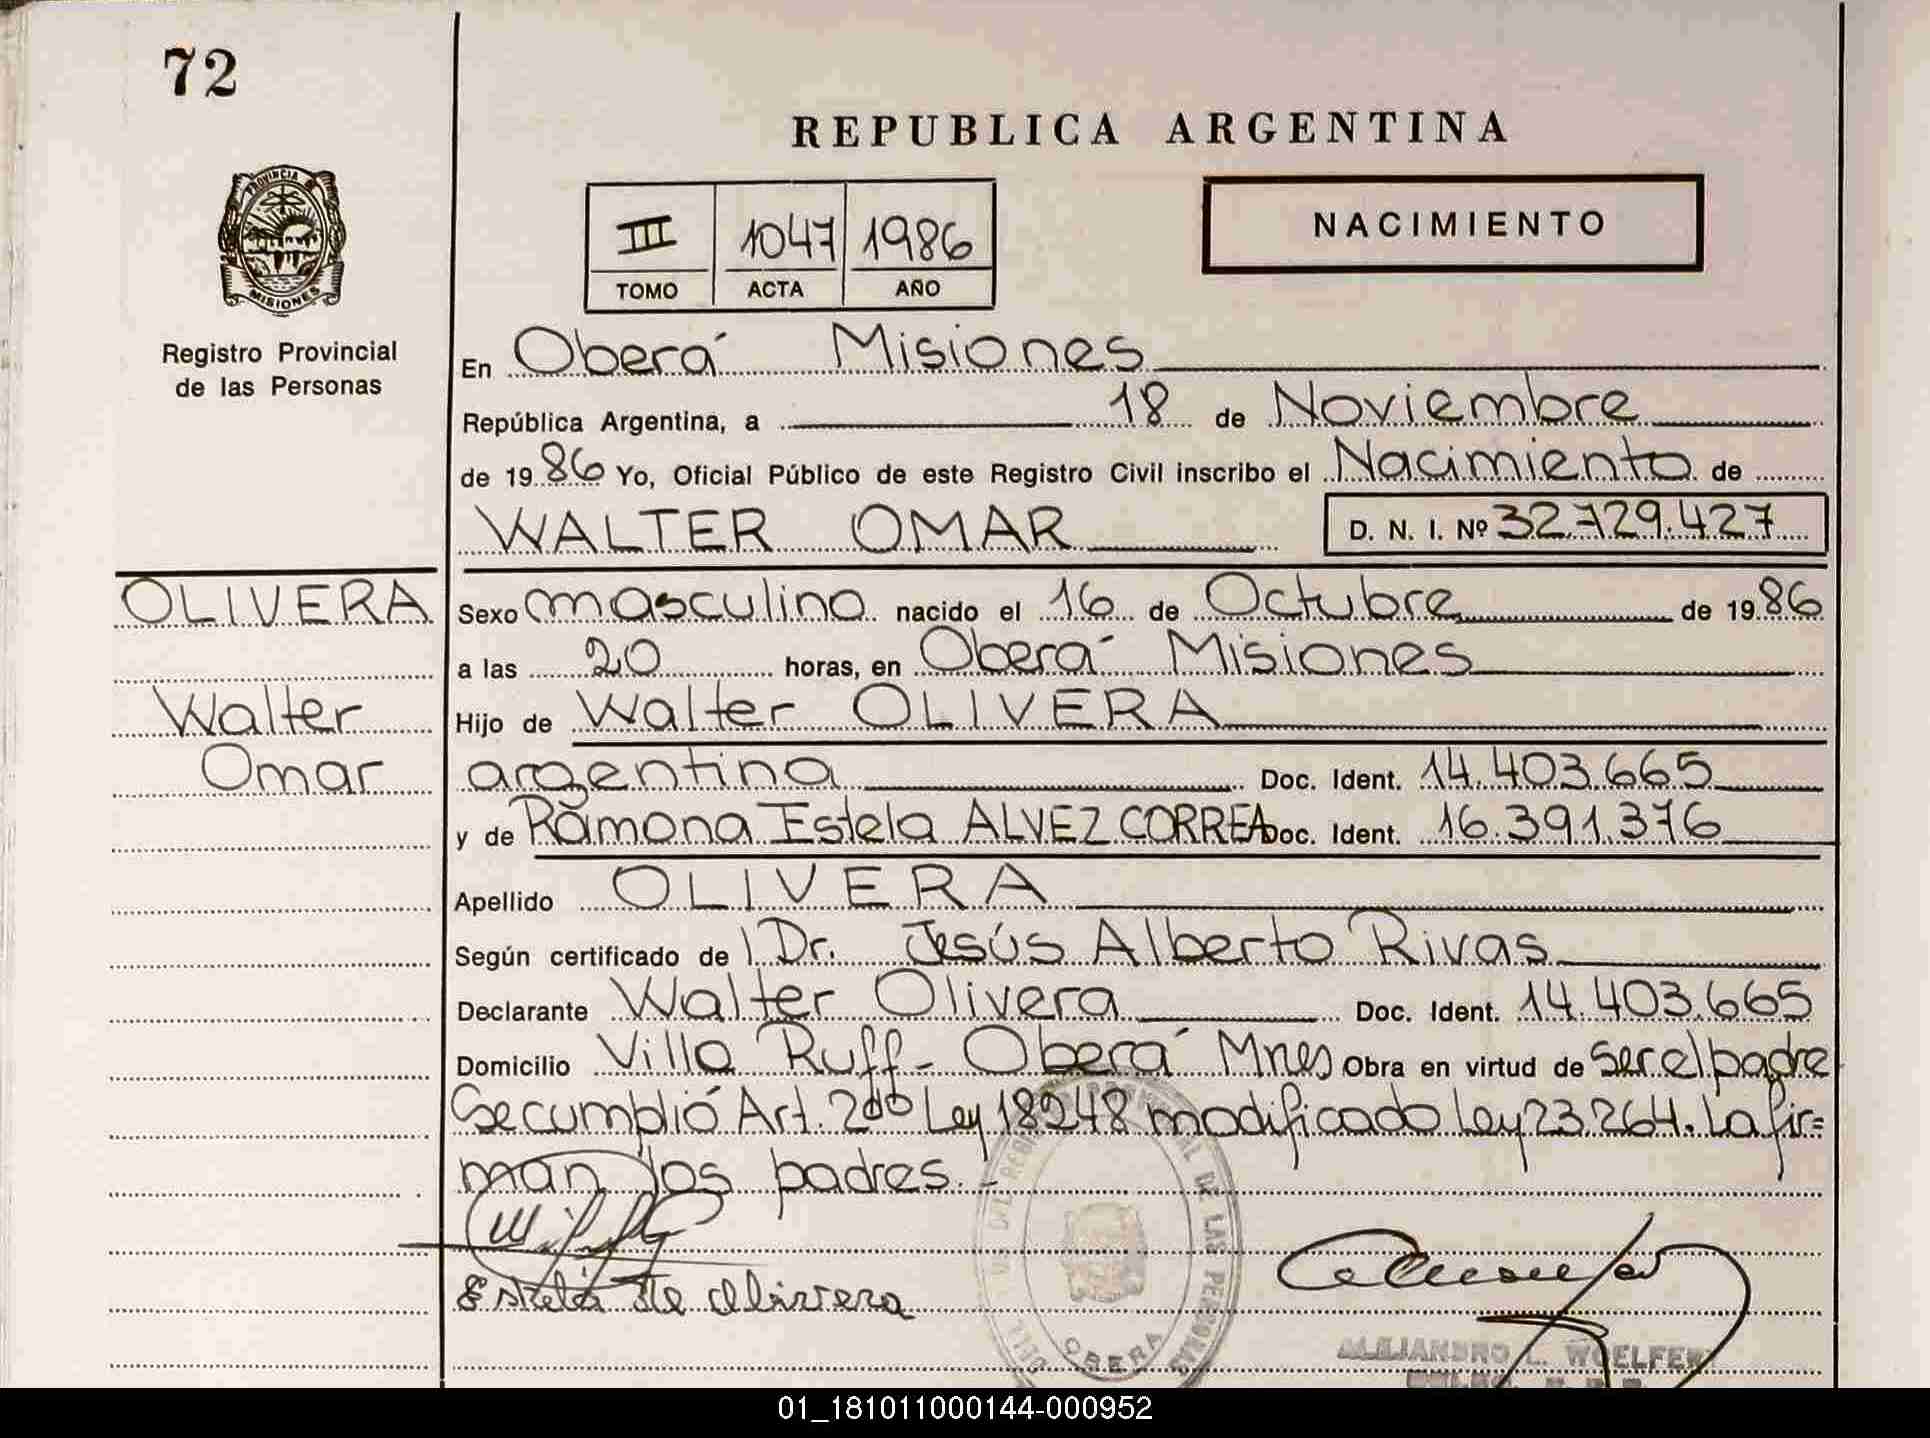 72
REPUBLICA ARGENTINA
PROVINCIA DE
MISIONES
III 1047 1986
TOMO ACTA AÑO
NACIMIENTO
Registro Provincial
de las Personas
En Oberá Misiones
República Argentina, a 18 de Noviembre
de 1986 Yo, Oficial Público de este Registro Civil inscribo el Nacimiento de
WALTER OMAR D. N. I. Nº 32.729.427
OLIVERA
Walter
Omar
Sexo masculino nacido el 16 de Octubre de 1986
a las 20 horas, en Oberá Misiones
Hijo de Walter OLIVERA
argentina Doc. Ident. 14.403.665
y de Ramona Estela ALVEZ CORREA Doc. Ident. 16.391.376
Apellido OLIVERA
Según certificado de Dr. Jesús Alberto Rivas
Declarante Walter Olivera Doc. Ident. 14.403.665
Domicilio Villa Ruff - Oberá Mnes Obra en virtud de ser el padre
Se cumplió Art. 2do Ley 18248 modificado Ley 23.264. La fir=
man los padres.-
Estela de Olivera
DE LAS PERSONAS
OBERA
ALEJANDRO L. WOELFERT
01_181011000144-000952